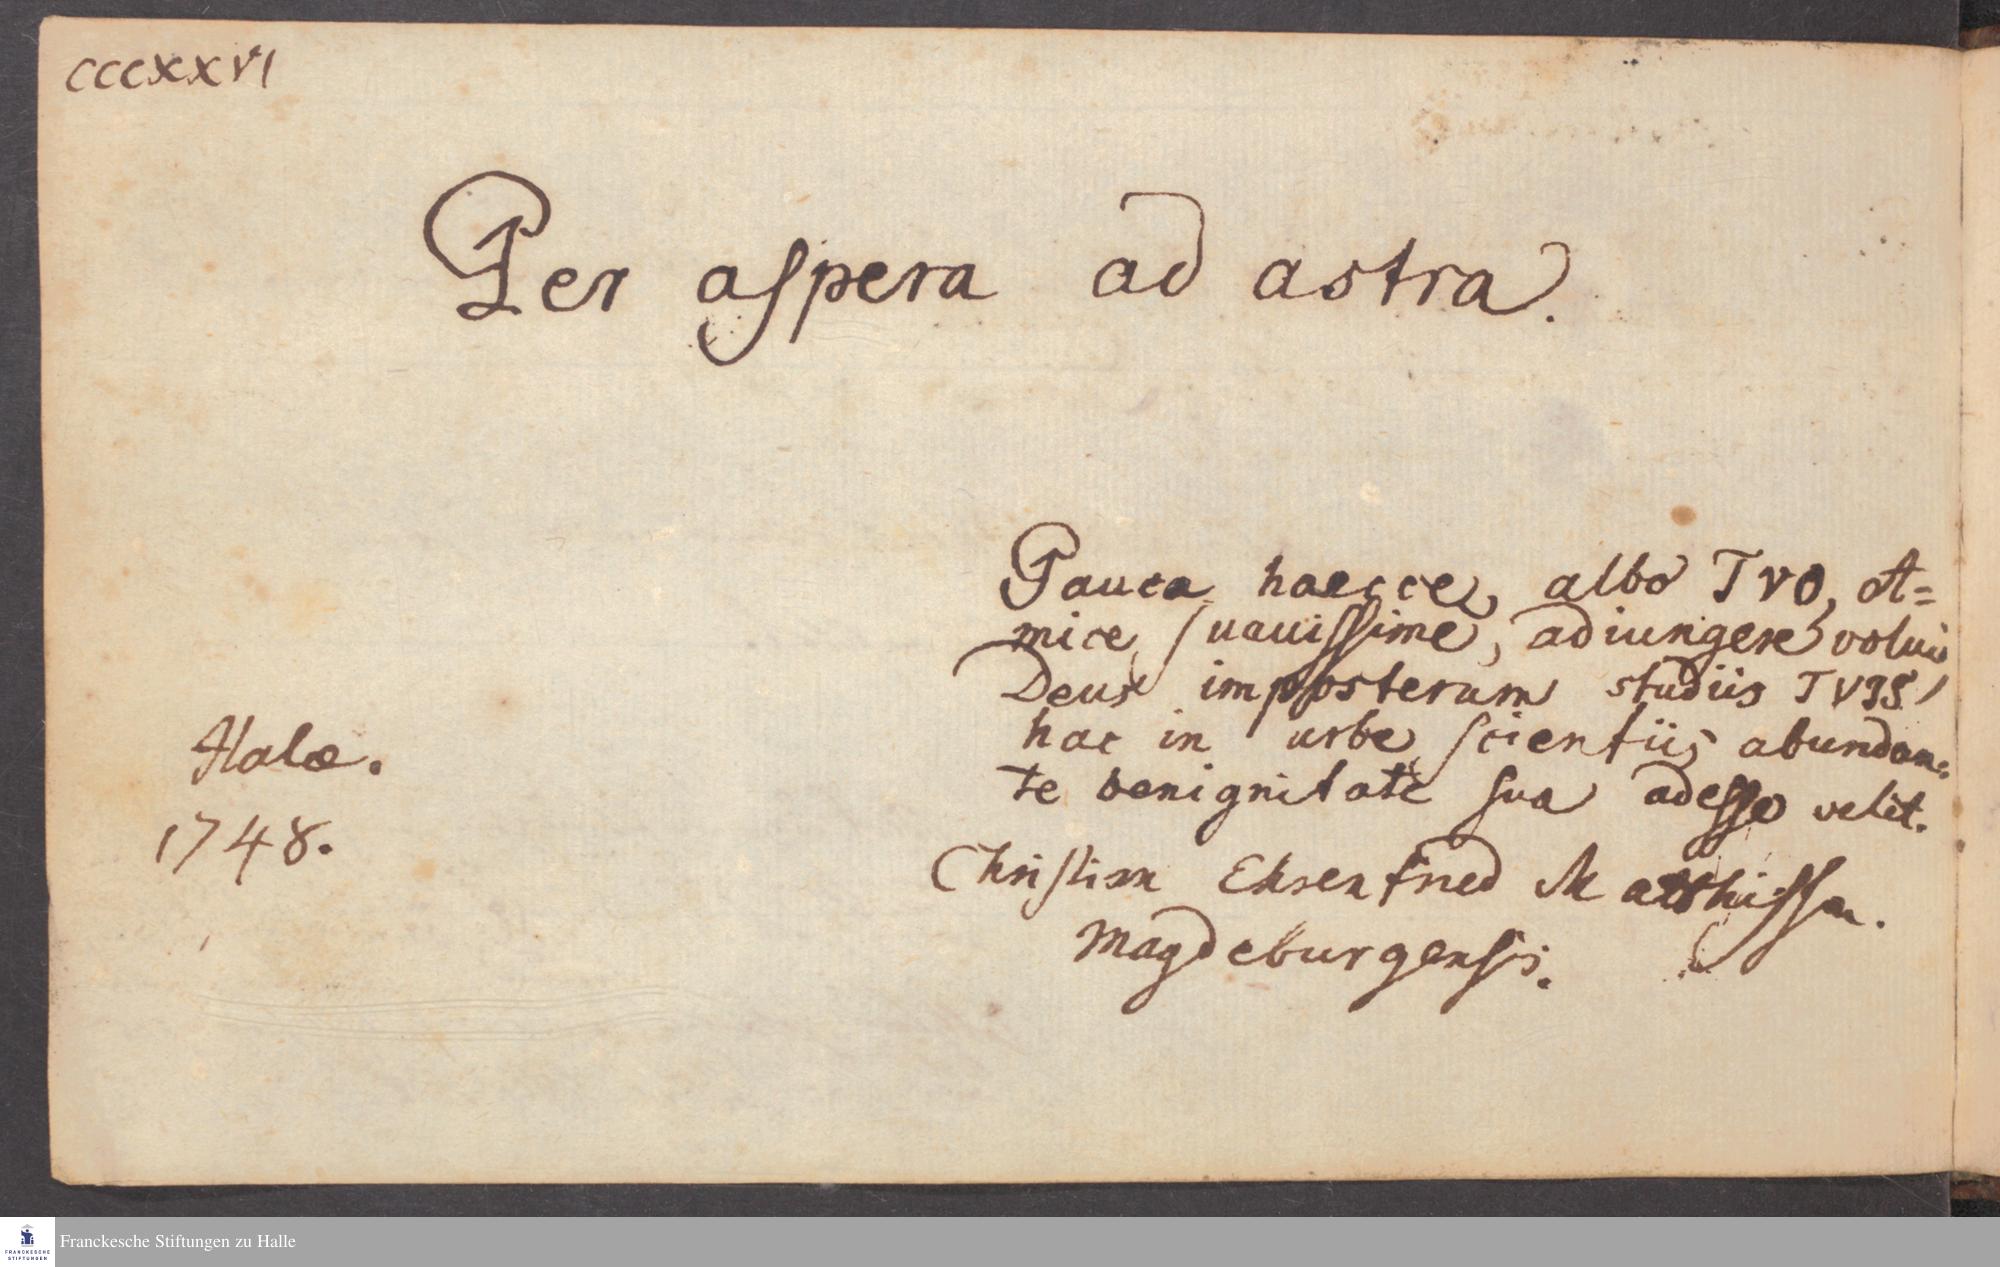 CCCXXVI
Per aspera ad astra.
Pauca haecce, albo TVO, A=
mice suauissime, adiungere volui
Deus imposterum studiis TVIS,
hac in urbe scientiis abundan=
te benignitate sua adesse velit.
Halæ.
1748.
Christian Ehrenfried Matthissen.
Magdeburgensis.
Franckesche Stiftungen zu Halle
FRANCKESCHE
STIFTUNGEN